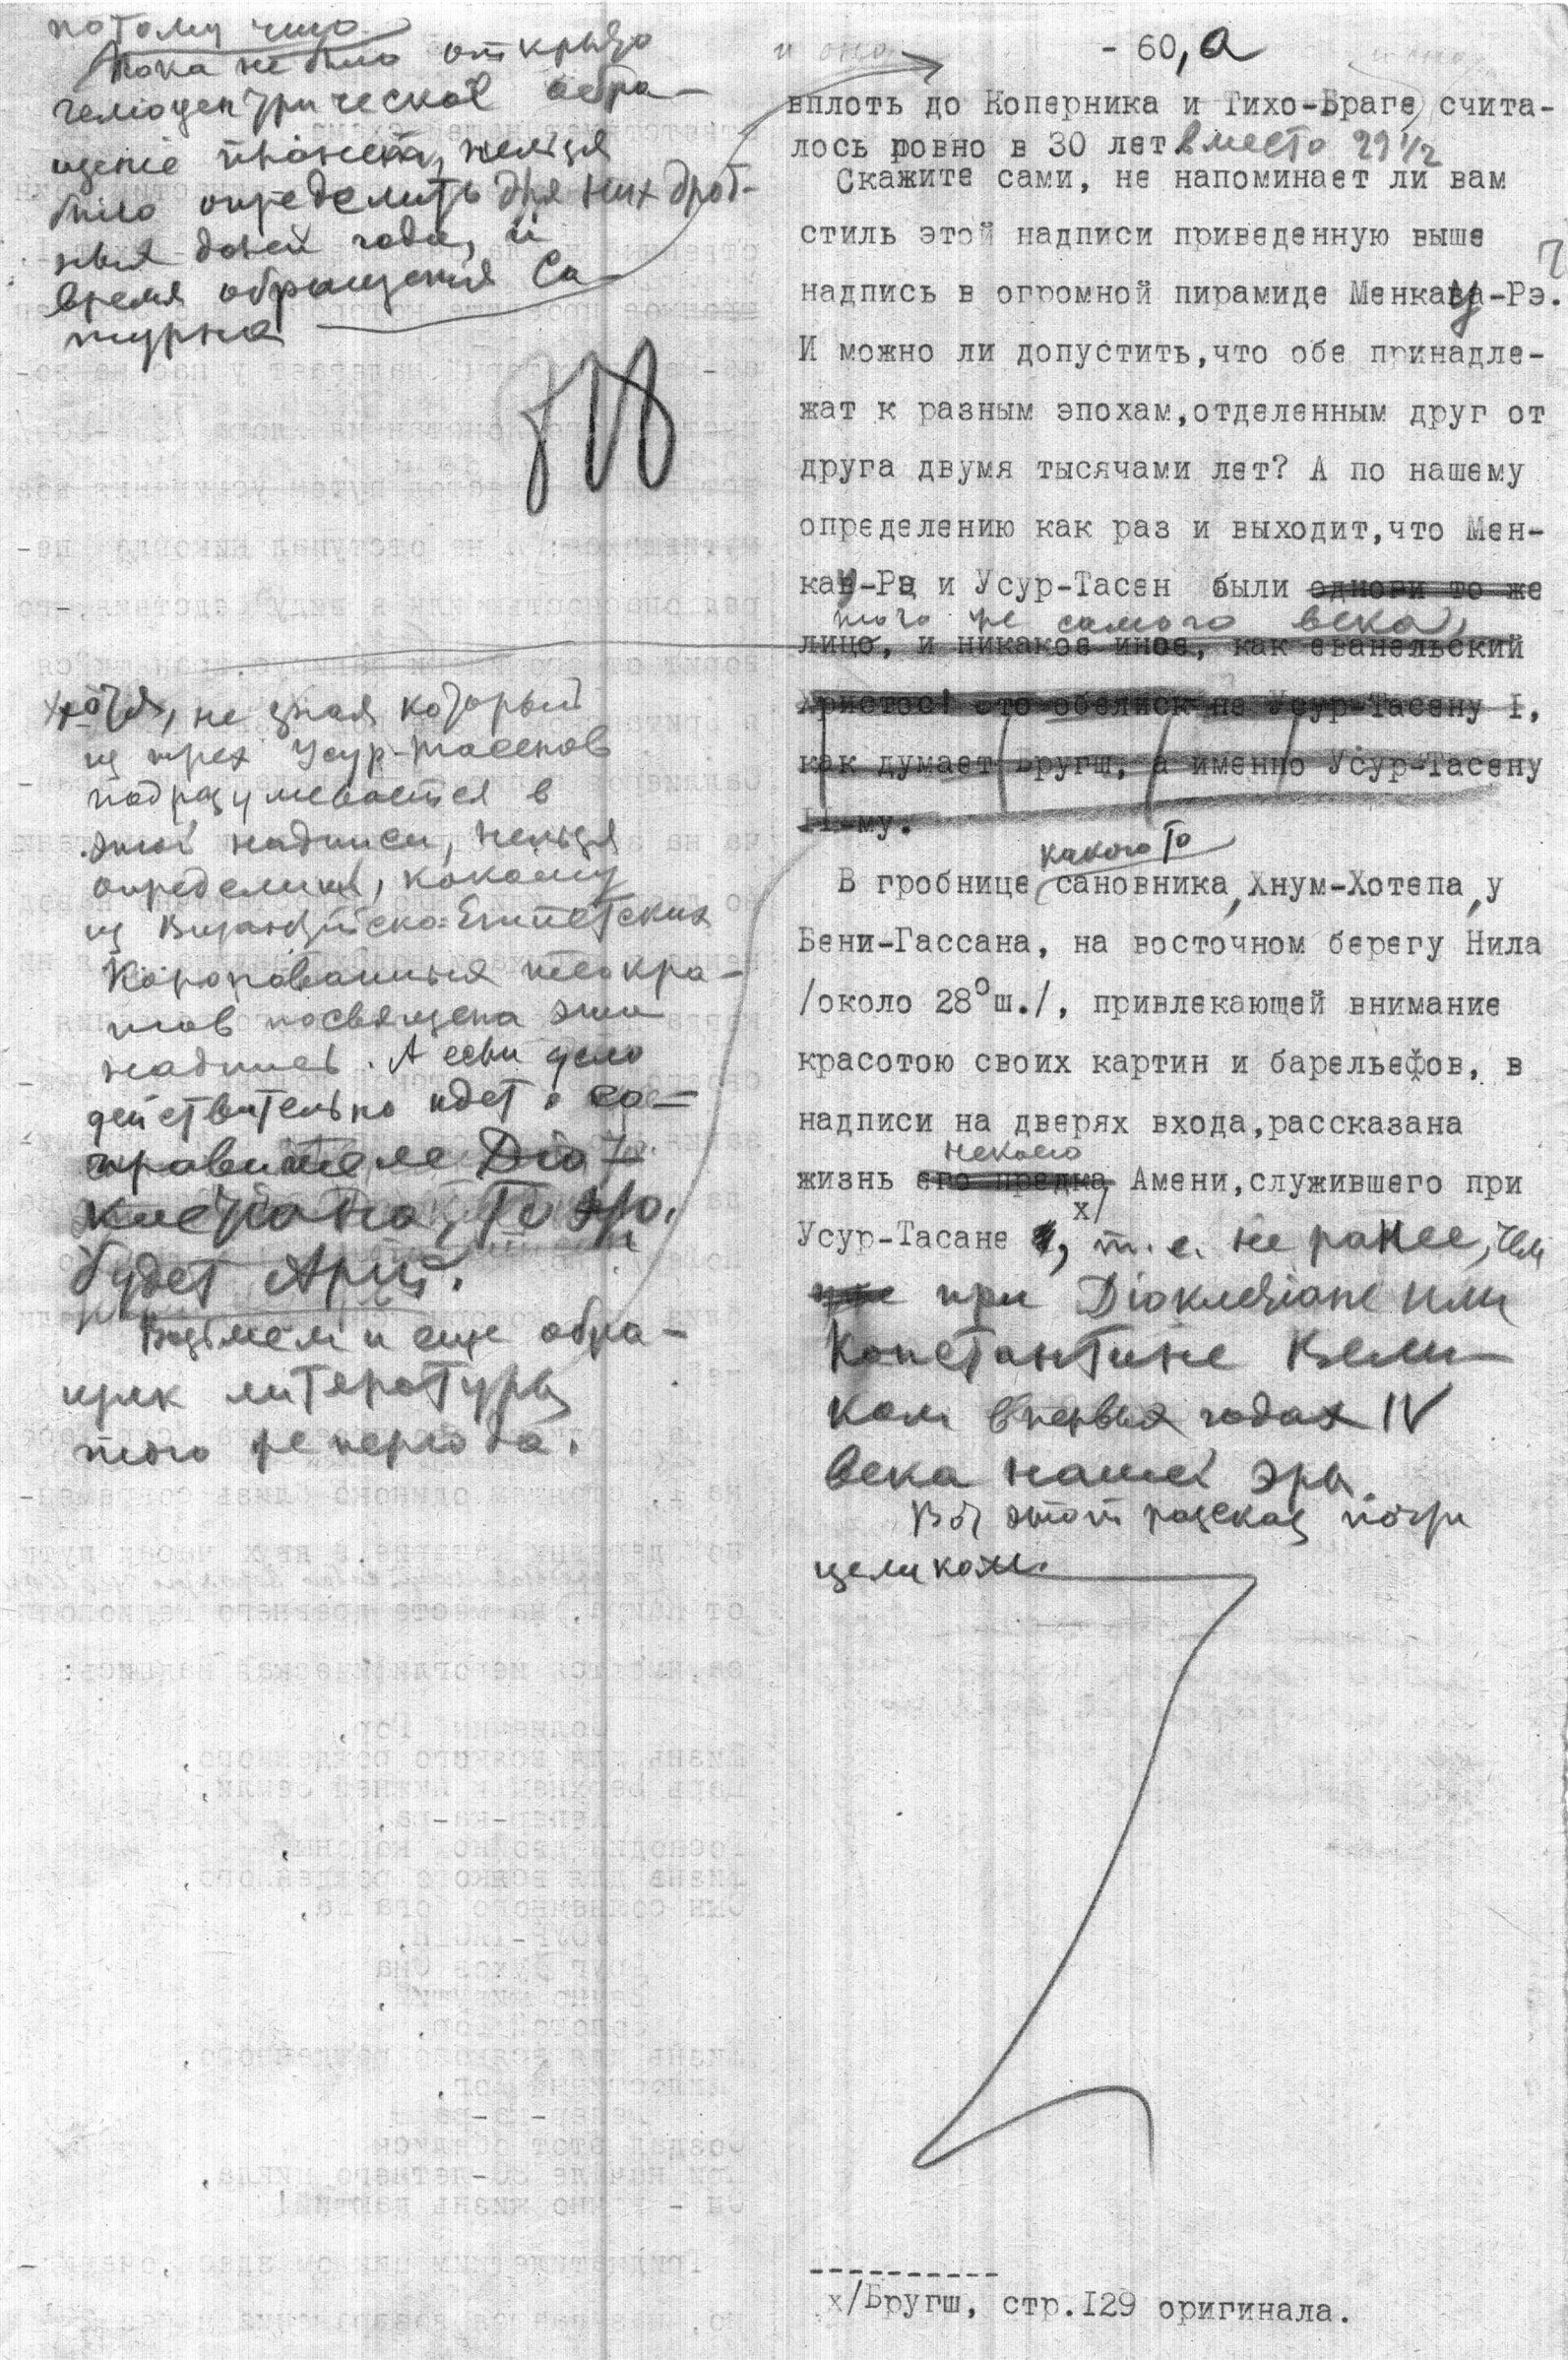 потому что
пока не было открыто
гелиоцентрическое обра-
щение планет, нельзя
было определить для них дроб-
ныя
время обращения Са-
турна
- 60,а
вплоть до Коперника и Тихо-Браге считa-
лось ровно в 30 лет вместо 29 1/2
Скажите сами, не напоминает ли вам
стиль этой надписи приведенную выше
надпись в огромной пирамиде Менкау-Рэ?
И можно ли допустить,что обе принадле-
жат к разным эпохам,отделенным друг от
друга двумя тысячами лет? А по нашему
определению как раз и выходит,что Мен-
кау-Рэ и Усур-Тасен были одново то же
того же самого века,
лицо, и никакое иное, как еванельский
Христос! Это обелиск не Усур-Тасену I,
как думает Бругш, а именно Усур-Тасену
II-му.
хотя, не зная который
из трех Усур-тасенов
подразумевается в
этой надписи, нельзя
определить, какому
из Византийско-Египетских
коронованных теокра-
тов посвящена эта
надпись. А если дело
действительно идет о со-
правителе Дио-
клетиана, то это
будет Арий.
Возьмем и еще обра-
зчик литературы
того же периода.
какого то
В гробнице сановника, Хнум-Хотепа, у
Бени-Гассана, на восточном берегу Нила
/около 28°ш./, привлекающей внимание
красотою своих картин и барельефов, в
надписи на дверях входа,рассказана
некоего
жизнь его предка Амени,служившего при
х/
Усур-Тасане, т.е. не ранее, чем
при Диоклетиане или
Константине Вели-
ком в первых годах IV
века нашей эры.
Вот этот рассказ почти
целиком.
----------
х/Бругш, стр.I29 оригинала.